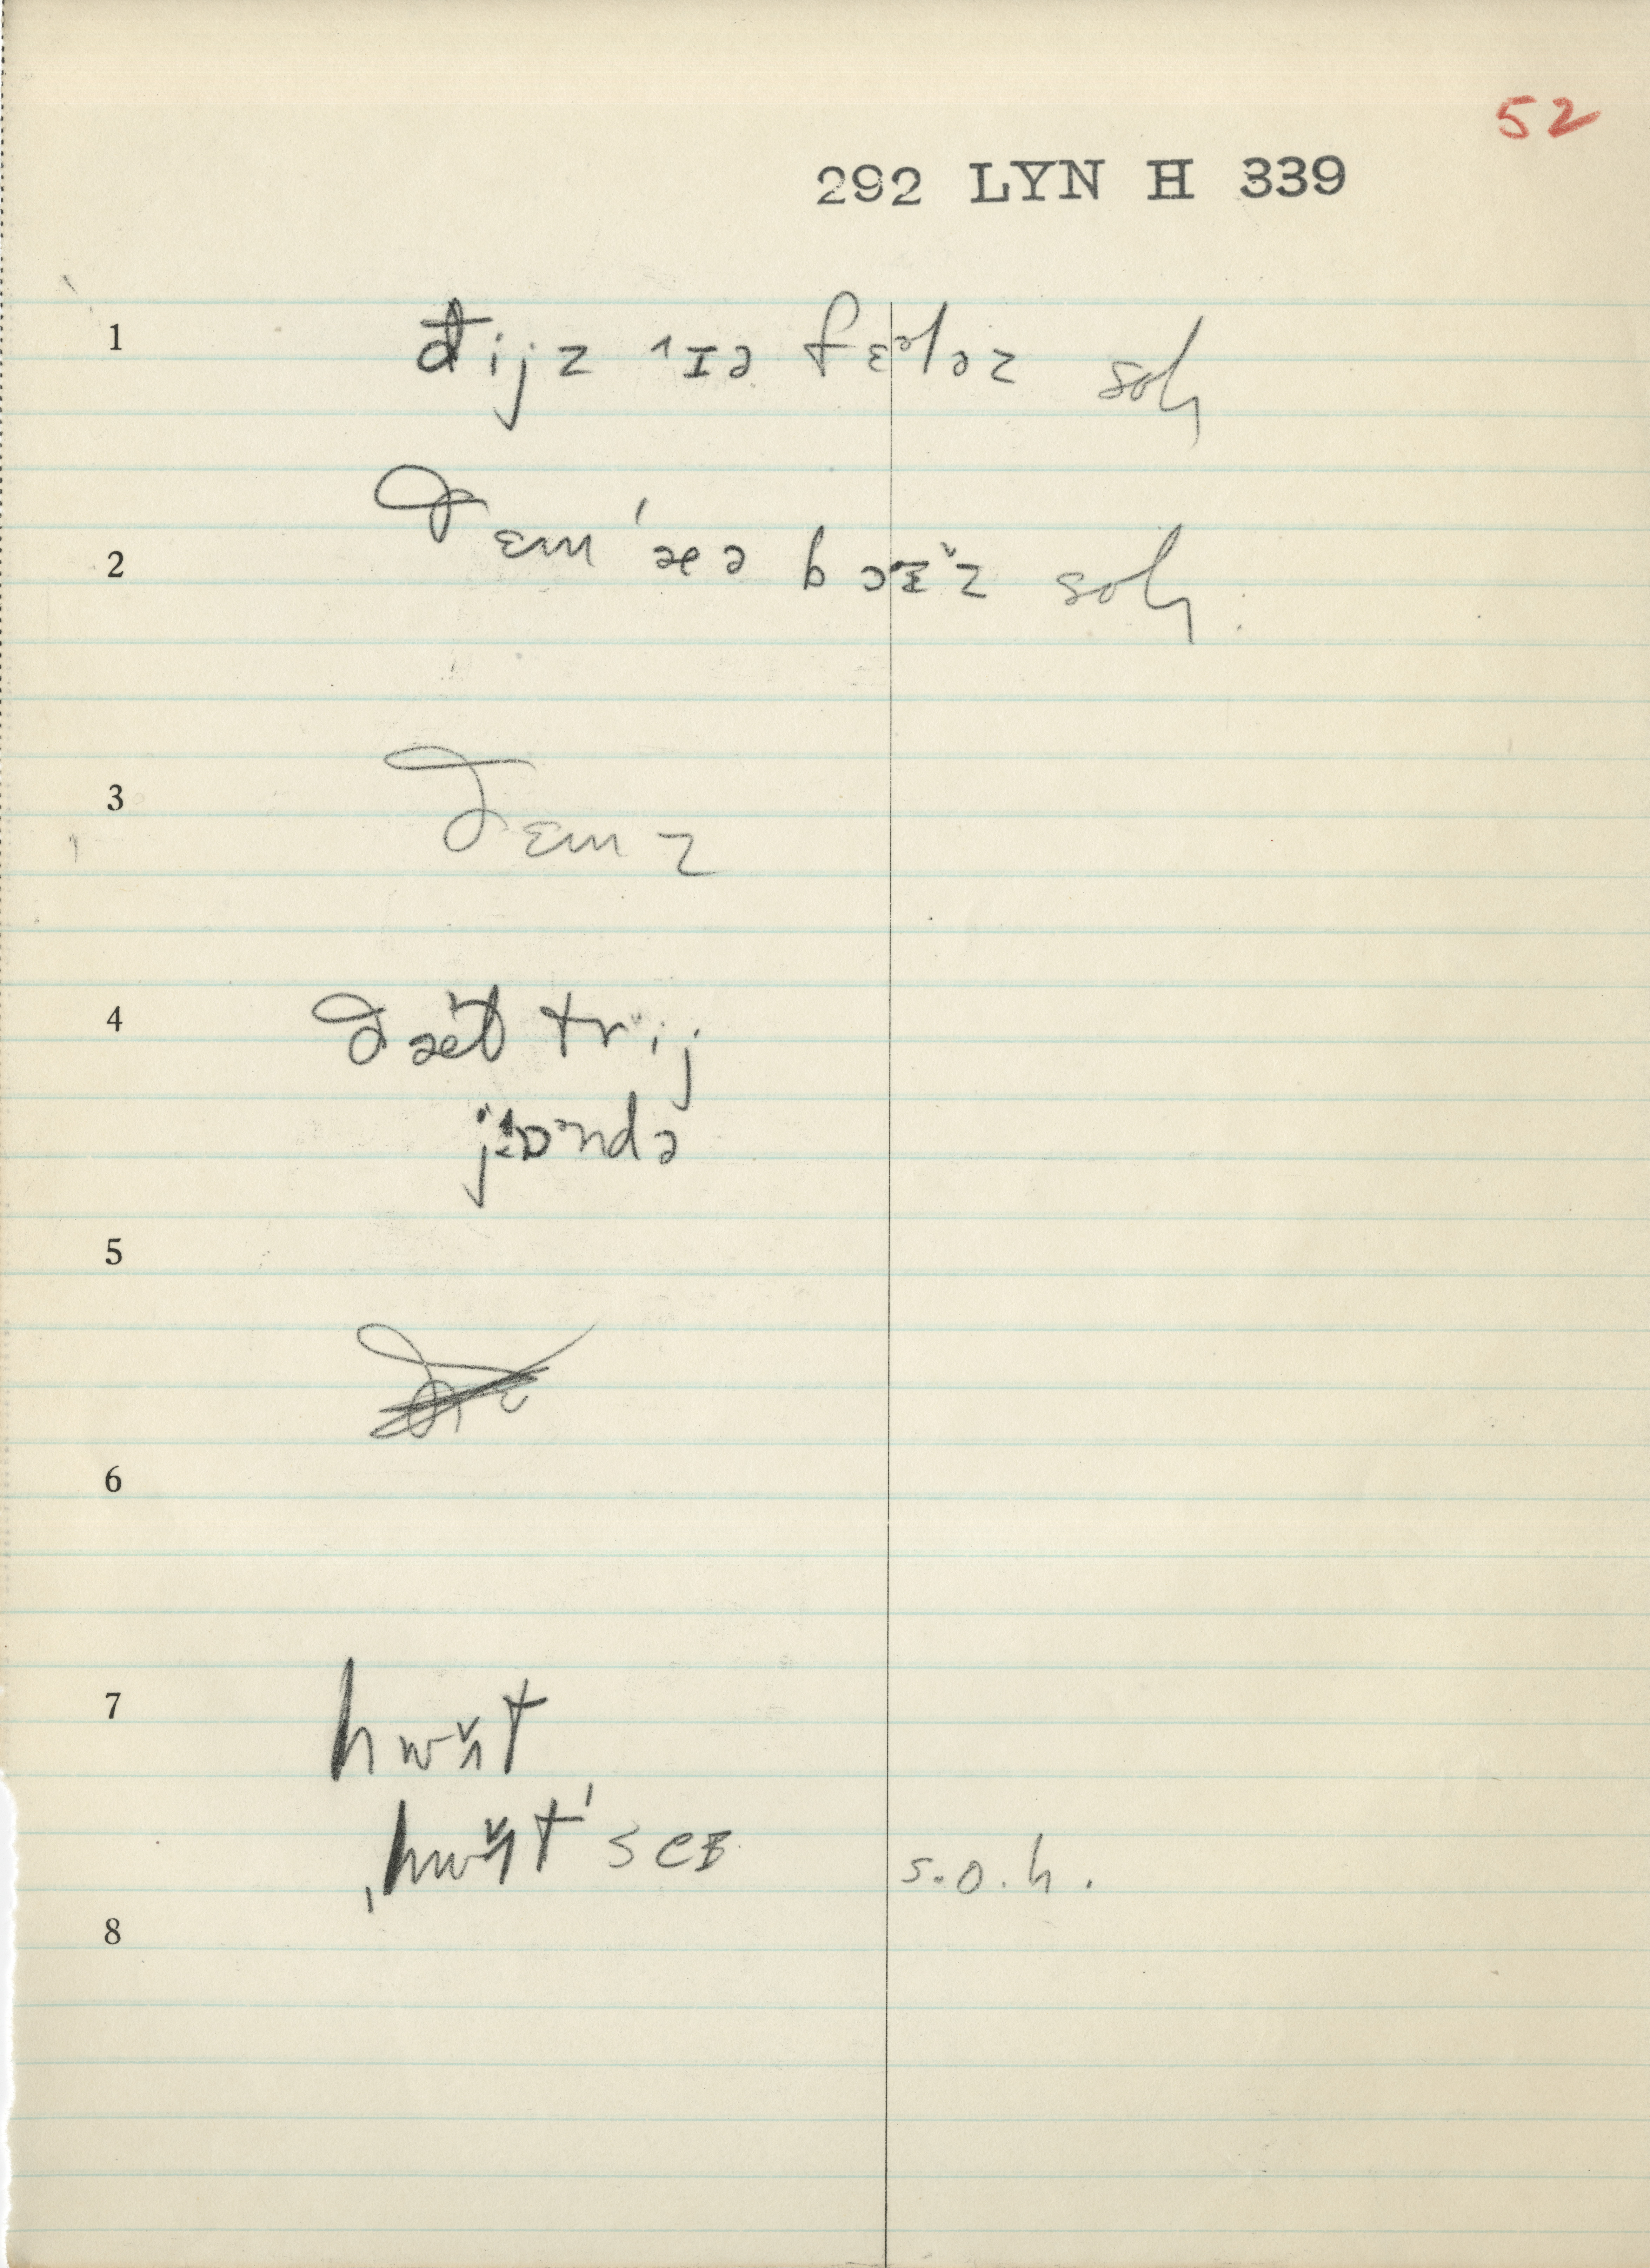 52
292 LYN H 339
1 đijz ˄ɪə fɛᵊləz soh
2 ðɛm 'æə bɔɪ̌z soh.
3 ðɛmz
4 ðæt̬ trij
jɒndə
5
6
7 hwɐt
hwɐt 'seɪ s.o.h.
8